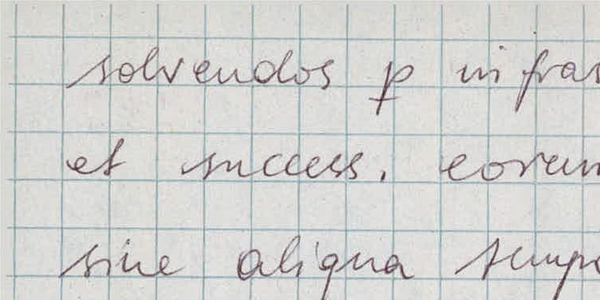 solvendos p infras
et success. eorum
sine aliqua temp